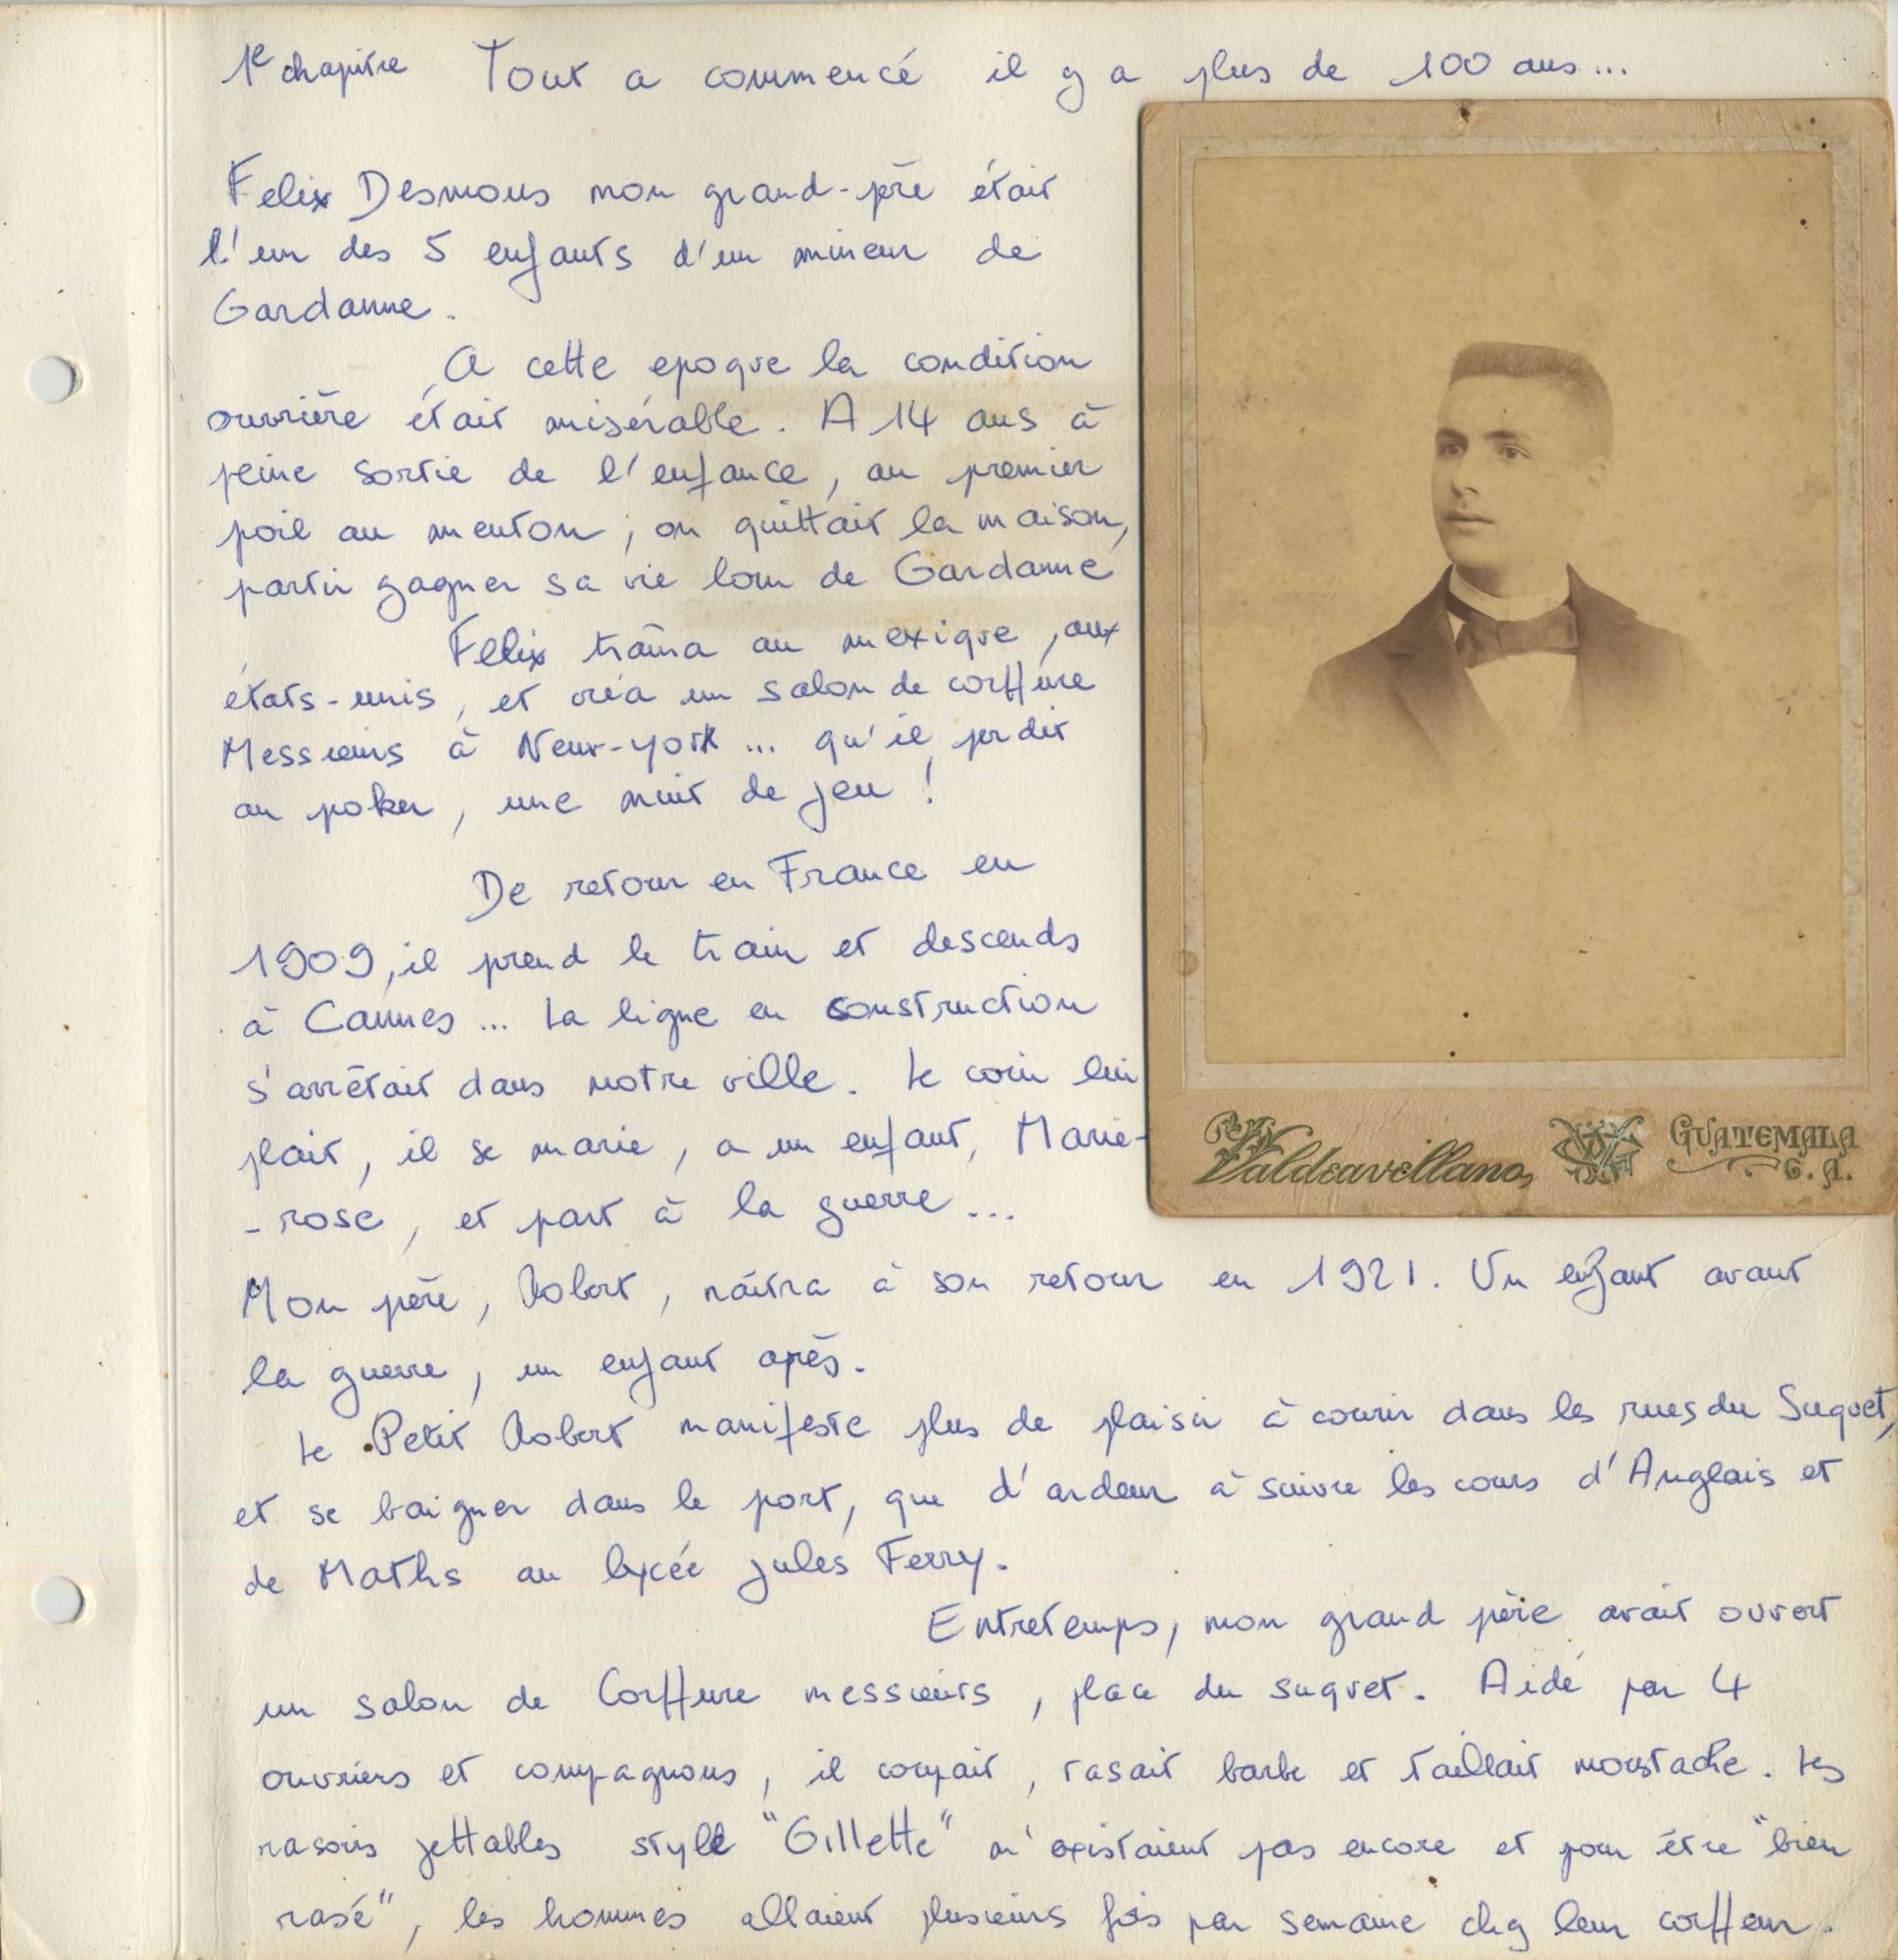 1e chapitre Tout a commencé il y a plus de 100 ans...
Felix Desmous mon grand-père était
l'un des 5 enfants d'un mineur de
Gardanne.
A cette epoque la condition
ouvrière était misérable. A 14 ans à
peine sortie de l'enfance, au premier
poil au menton, on quittait la maison,
partir gagner sa vie loin de Gardanne
Felix traîna au mexique, aux
états-unis, et créa un salon de coiffure
Messieurs à New-york... qu'il perdit
au poker, une nuit de jeu !
De retour en France en
1909, il prend le train et descends
à Cannes... La ligne en construction
s'arrêtait dans notre ville. Le coin lui
plait, il se marie, a un enfant, Marie-
-rose, et part à la guerre...
Mon père, Robert, naîtra à son retour en 1921. Un enfant avant
la guerre, un enfant après.
Le Petit Robert manifeste plus de plaisir à courir dans les rues du Suquet,
et se baigner dans le port, que d'ardeur à suivre les cours d'Anglais et
de Maths au lycée Jules Ferry.
Entretemps, mon grand père avait ouvert
un salon de Coiffure messieurs, place du suquet. Aidé par 4
ouvriers et compagnons, il coupait, rasait barbe et taillait moustache. Les
rasoirs jettables style "Gillette" n'existaient pas encore et pour être "bien
rasé", les hommes allaient plusieurs fois par semaine chez leur coiffeur.
Valdeavellano, GUATEMALA
C. A.